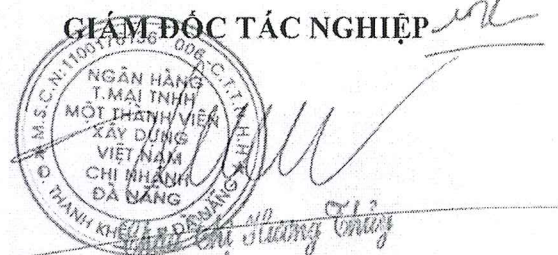 GIÁM ĐỐC TÁC NGHIỆP
M.S.C.N:1100178156-006-C.T.T.N.H.H
NGÂN HÀNG
T.MẠI TNHH
MỘT THÀNH VIÊN
XÂY DỰNG
VIỆT NAM
CHI NHÁNH
ĐÀ NẴNG
THANH KHÊ ĐÀ NẴNG
Thị Hương Thủy